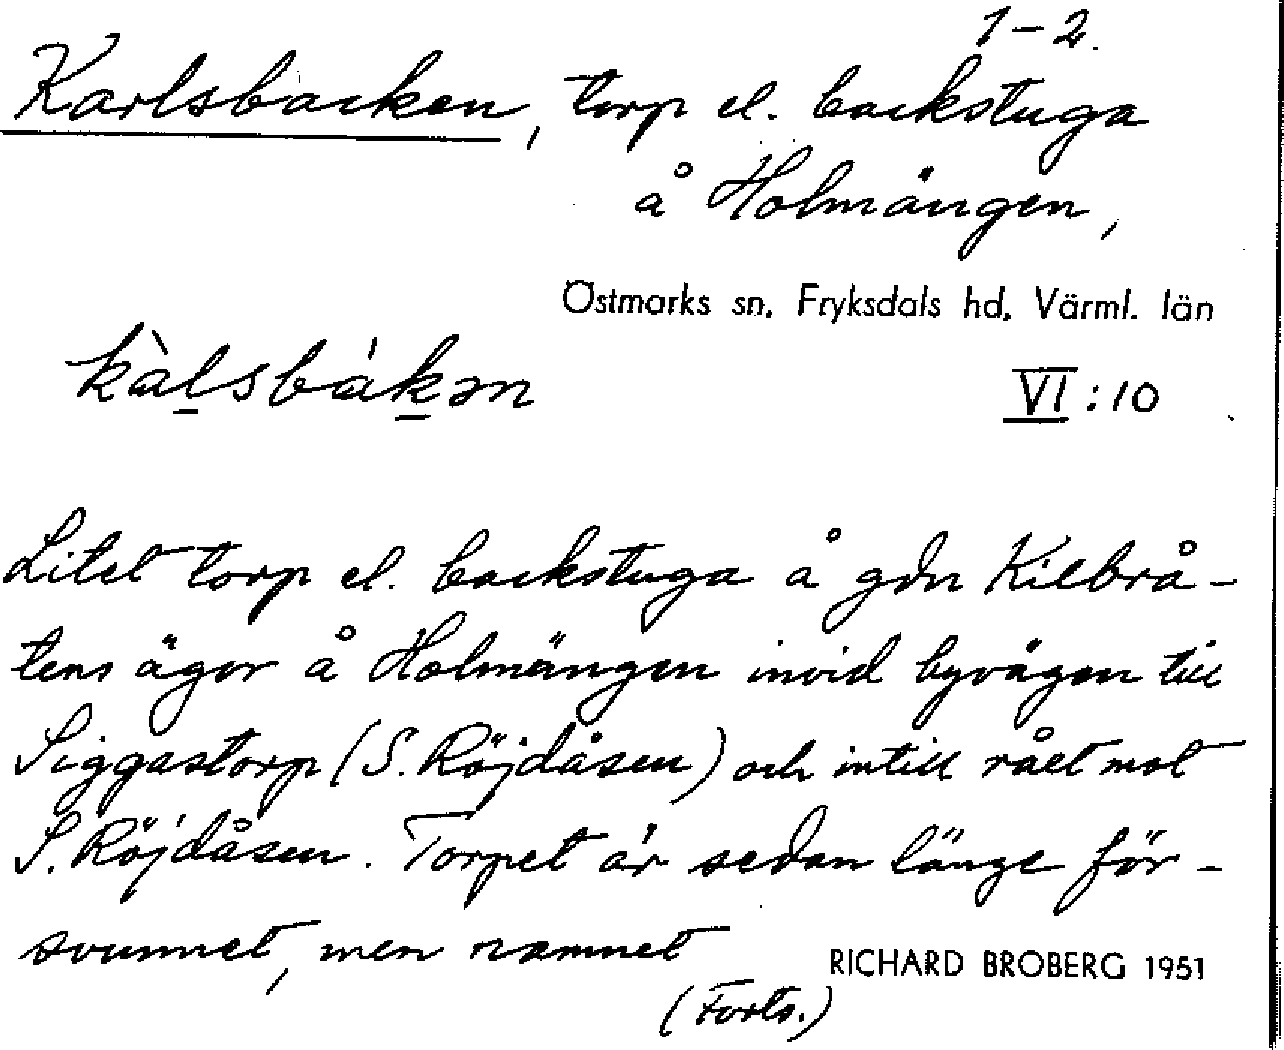 1-2.
Karlsbacken, torp el. backstuga
å Holmängen,
Östmarks sn, Fryksdals hd, Värml. län
kàḻsbák̠ən
VI:10
Litet torp el. backstuga å gdn Kilbrå-
tens ägor å Holmängen invid byvägen till
Siggastorp (S. Röjdåsen) och intill rået mot
S. Röjdåsen. Torpet är sedan länge för-
svunnet, men namnet
RICHARD BROBERG 1951
(Forts.)